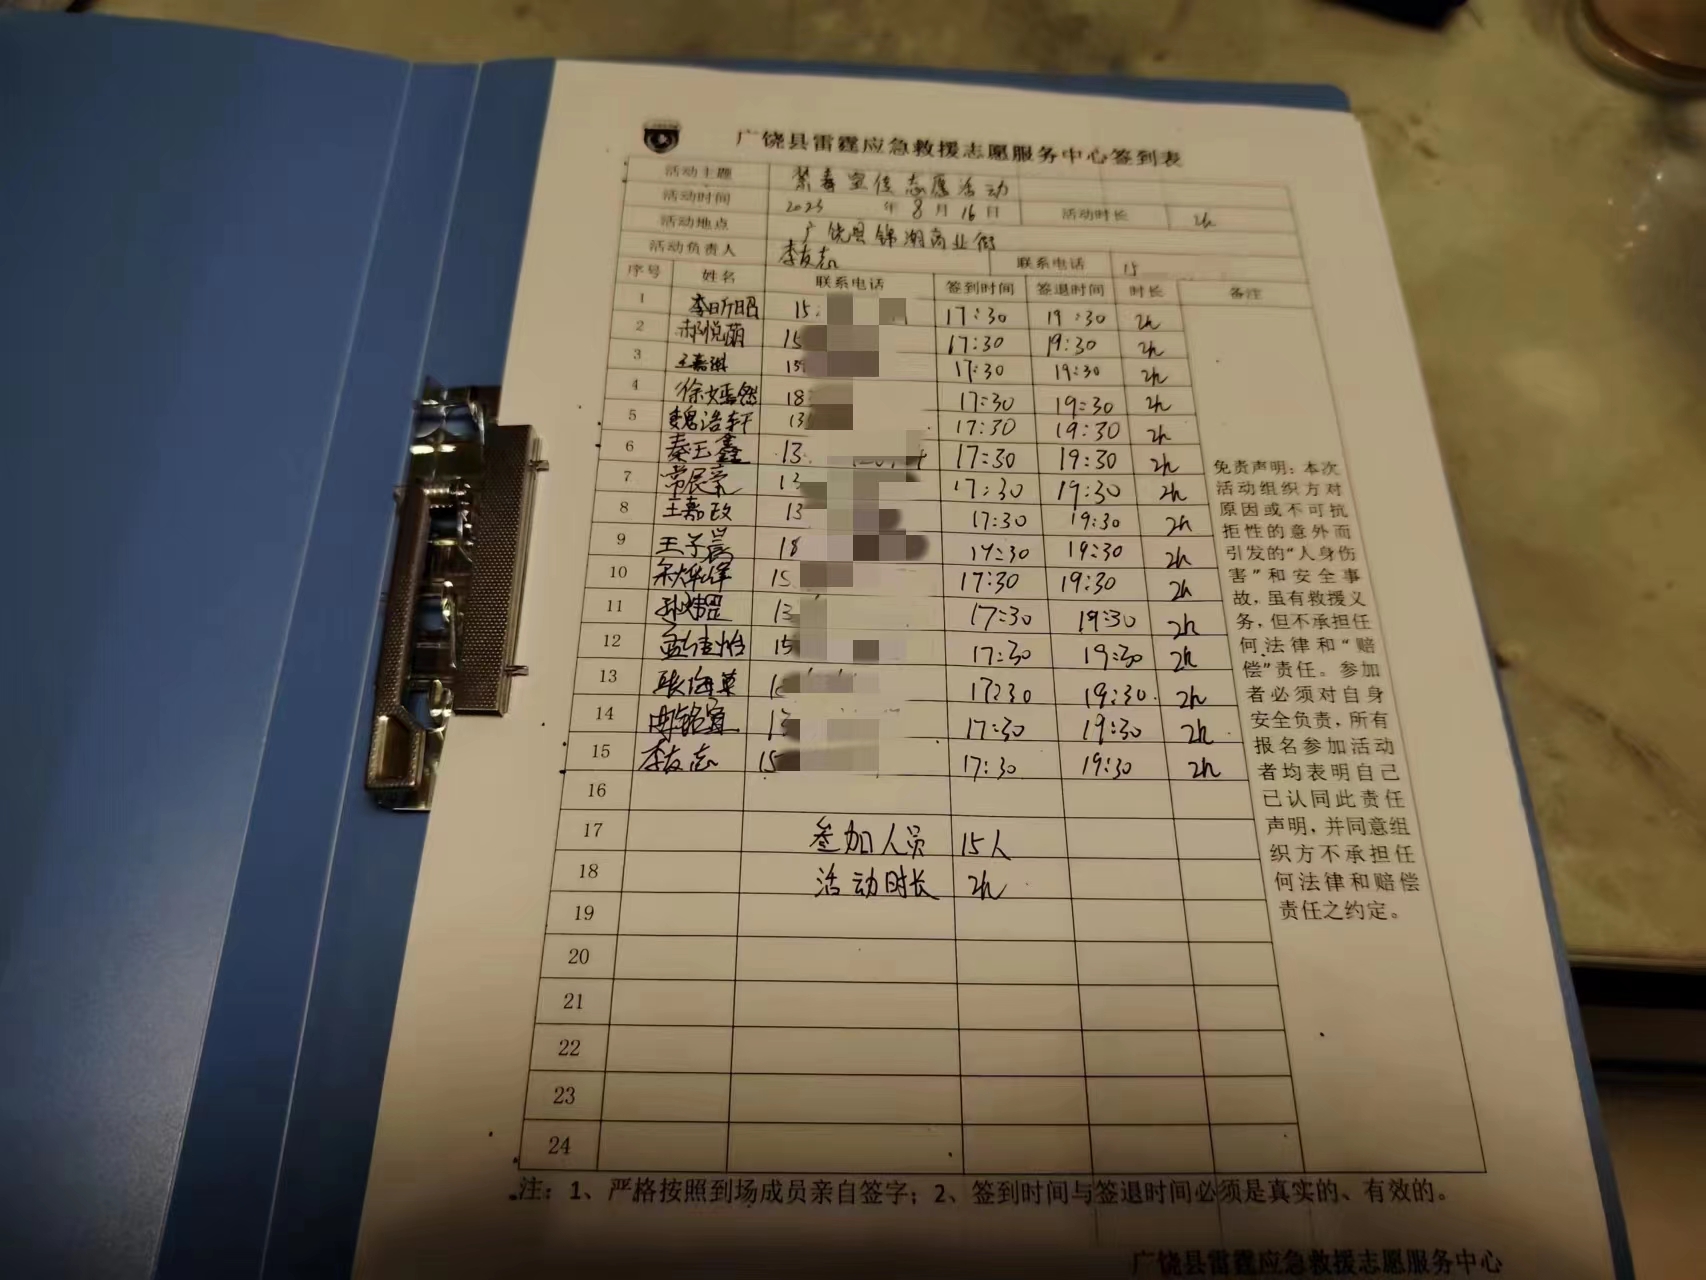 广饶县雷霆应急救援志愿服务中心签到表
活动主题 禁毒宣传志愿活动
活动时间 2023 年 8 月 16 日 活动时长 2h
活动地点 广饶县锦湖商业街
活动负责人 李友志 联系电话 15
序号 姓名 联系电话 签到时间 签退时间 时长 备注
1 李昕昭 15 17:30 19:30 2h
2 郝悦萌 15 17:30 19:30 2h
3 王嘉淇 15 17:30 19:30 2h
4 徐嫣然 18 17:30 19:30 2h
5 魏浩轩 13 17:30 19:30 2h
6 秦玉鑫 13 17:30 19:30 2h
7 常宸豪 13 17:30 19:30 2h
8 王嘉政 13 17:30 19:30 2h
9 王子晨 18 17:30 19:30 2h
10 15 17:30 19:30 2h
11 13 17:30 19:30 2h
12 孟佳怡 15 17:30 19:30 2h
13 17:30 19:30 2h
14 17:30 19:30 2h
15 李友志 15 17:30 19:30 2h
16
17 参加人员 15人
18 活动时长 2h
19
20
21
22
23
24
免责声明：本次
活动组织方对
原因或不可抗
拒性的意外而
引发的“人身伤
害”和安全事
故，虽有救援义
务，但不承担任
何法律和“赔
偿”责任。参加
者必须对自身
安全负责，所有
报名参加活动
者均表明自己
已认同此责任
声明，并同意组
织方不承担任
何法律和赔偿
责任之约定。
注：1、严格按照到场成员亲自签字；2、签到时间与签退时间必须是真实的、有效的。
广饶县雷霆应急救援志愿服务中心